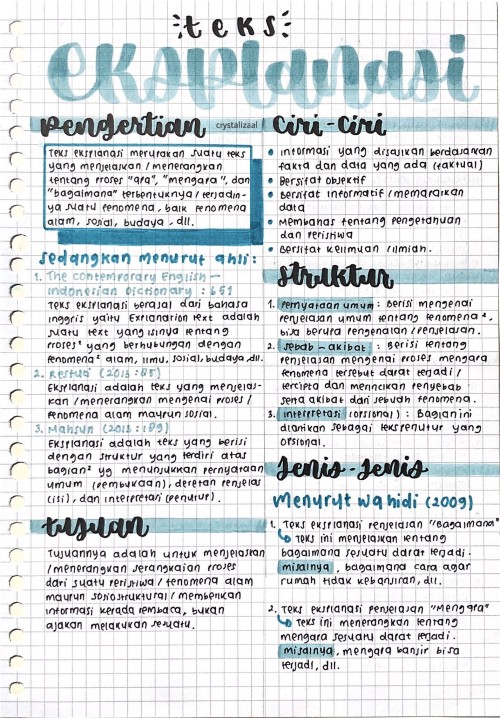 teks
eksplanasi
pengertian
crystalizaal
Teks eksplanasi merupakan suatu teks
yang menjelaskan/menerangkan
tentang proses "apa", "mengapa", dan
"bagaimana" terbentuknya/terjadin-
ya suatu fenomena, baik fenomena
alam, sosial, budaya, dll.
sedangkan menurut ahli:
1. The contemporary English -
Indonesian Dictionary : 651
Teks eksplanasi berasal dari bahasa
inggris yaitu Explanation text adalah
suatu text yang isinya tentang
proses² yang berhubungan dengan
fenomena² alam, ilmu, sosial, budaya, dll.
2. Restuti (2013 : 85)
Eksplanasi adalah teks yang menjelas-
kan/menerangkan mengenai proses/
fenomena alam maupun sosial.
3. Mahsun (2013 : 189)
Eksplanasi adalah teks yang berisi
dengan struktur yang terdiri atas
bagian² yg menunjukkan pernyataan
umum (pembukaan), deretan penjelas
(isi), dan interpretasi (penutup).
tujuan
Tujuannya adalah untuk menjelaskan
/menerangkan serangkaian proses
dari suatu peristiwa/fenomena alam
maupun sosiostruktural/memberikan
informasi kepada pembaca, bukan
ajakan melakukan sesuatu.
Ciri-Ciri
• Informasi yang disajikan berdasarkan
fakta dan data yang ada (faktual)
• Bersifat objektif
• Bersifat informatif/memaparkan
data
• Membahas tentang pengetahuan
dan peristiwa
• Bersifat keilmuan/ilmiah.
struktur
1. Pernyataan umum : berisi mengenai
penjelasan umum tentang fenomena²,
bisa berupa pengenalan/penjelasan.
2. sebab-akibat : Berisi tentang
penjelasan mengenai proses mengapa
fenomena tersebut dapat terjadi/
tercipta dan merincikan penyebab
serta akibat dari sebuah fenomena.
3. interpretasi (opsional) : Bagian ini
diartikan sebagai teks penutup yang
opsional.
Jenis-Jenis
Menurut wahidi (2009)
1. Teks eksplanasi penjelasan "Bagaimana"
↳ Teks ini menjelaskan tentang
bagaimana sesuatu dapat terjadi.
misalnya, bagaimana cara agar
rumah tidak kebanjiran, dll.
2. Teks eksplanasi penjelasan "Mengapa"
↳ Teks ini menerangkan tentang
mengapa sesuatu dapat terjadi.
misalnya, mengapa banjir bisa
terjadi, dll.